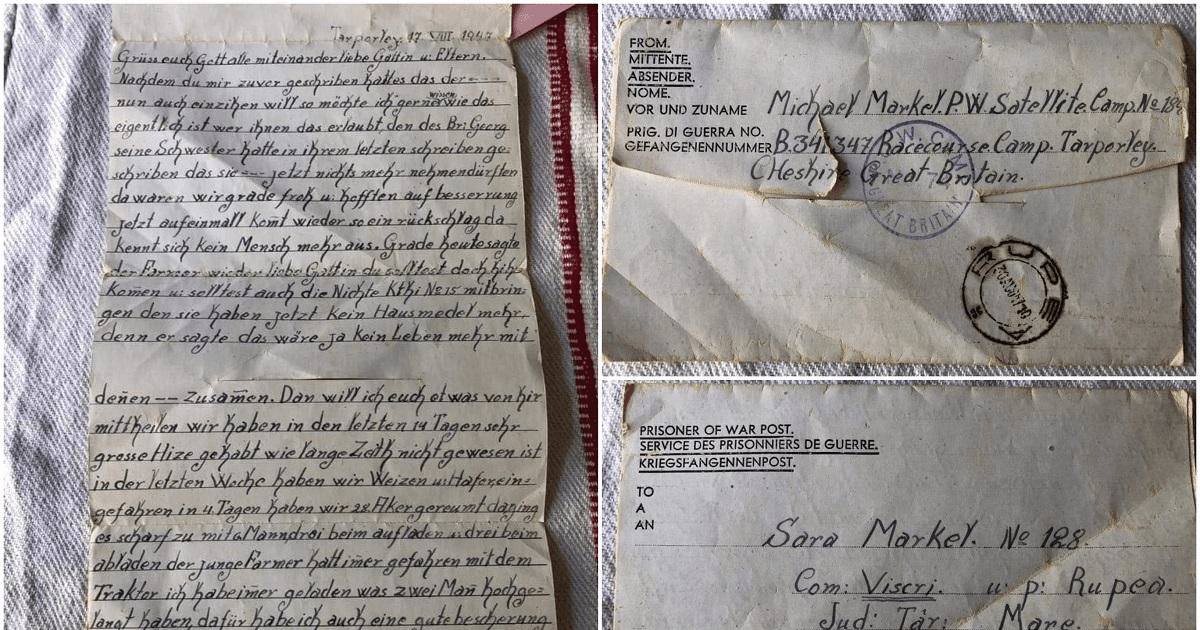 Tarporley. 17. VIII. 1947.
Grüss euch Gott alle miteinander liebe Gattin u: Eltern.
Nachdem du mir zuvor geschriben hattes das der ----
nun auch einziken will so möchte ich gerne wissen wie das
eigentlich ist wer ihnen das erlaubt, den des Br: Georg
seine Schwester hatte in ihrem letzten schreiben ge:
schriben das sie --- jetzt nichts mehr nehmen dürften
da waren wir grade froh u: hofften auf besserrung
jetzt aufeinmall komt wieder so ein rückschlag da
kennt sich kein Mensch mehr aus. Grade heute sagte
der Farmer wieder liebe Gattin du solltest doch hih:
komen u: solltest auch die Nichte Kthi No 15 mitbrin:
gen den sie haben jetzt kein Hausmedel mehr,
denn er sagte das wäre ja kein Leben mehr mit
denen --- zusamen. Dan will ich euch etwas von hir
mittheilen wir haben in den letzten 14 Tagen sehr
grosse Hize gehabt wie lange Zeith nicht gewesen ist
in der letzten Woche haben wir Weizen u: Hafer, ein:
gefahren in 4 Tagen haben wir 28 Aker gereumt da ging
es scharf zu mit 6 Mann drei beim aufladen u: drei beim
abladen der junge Farmer hatt imer gefahren mit dem
Traktor ich habe imer geladen was zwei Man hochge:
langt haben, dafür habe ich auch eine gute bescherung
FROM.
MITTENTE.
ABSENDER.
NOME.
VOR UND ZUNAME Michael Markel. P.W. Satellite. Camp. No
PRIG. DI GUERRA NO.
GEFANGENENNUMMER B. 347 Racecourse. Camp. Tarporley.
Cheshire Great Britain.
GREAT BRITAIN
RUPEA
PRISONER OF WAR POST.
SERVICE DES PRISONNIERS DE GUERRE.
KRIEGSFANGENNENPOST.
TO
A
AN
Sara Markel. No 128.
Com: Viscri. u: p: Rupea.
Jud: Târ: Mare.